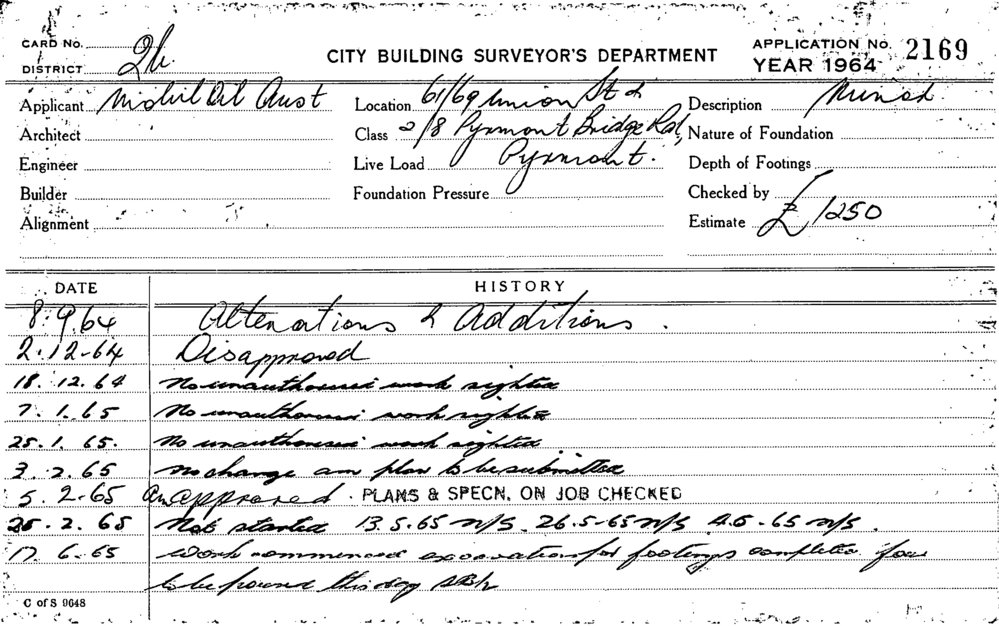 CARD No. 2b.
DISTRICT
CITY BUILDING SURVEYOR'S DEPARTMENT
APPLICATION No. 2169
YEAR 1964
Applicant Mobil Oil Aust
Location 61/69 Union St &
Description
Architect
Class 2/8 Pyrmont Bridge Rd,
Nature of Foundation
Engineer
Live Load Pyrmont.
Depth of Footings
Builder
Foundation Pressure
Checked by
Alignment
Estimate £1250
DATE HISTORY
8.9.64 Alterations & Additions.
2.12-64 Disapproved
18.12.64 No unauthorised work sighted
7.1.65 No unauthorised work sighted
25.1.65. No unauthorised work sighted
3.2.65 No change am plan to be submitted
5.2-65 am approved. PLANS & SPECN. ON JOB CHECKED
25.2.65 Not started 13.5.65 n/s. 26.5-65 n/s 4.6-65 n/s.
17.6.65 Work commenced excavation for footings completed
to be poured this day
C of S 9648